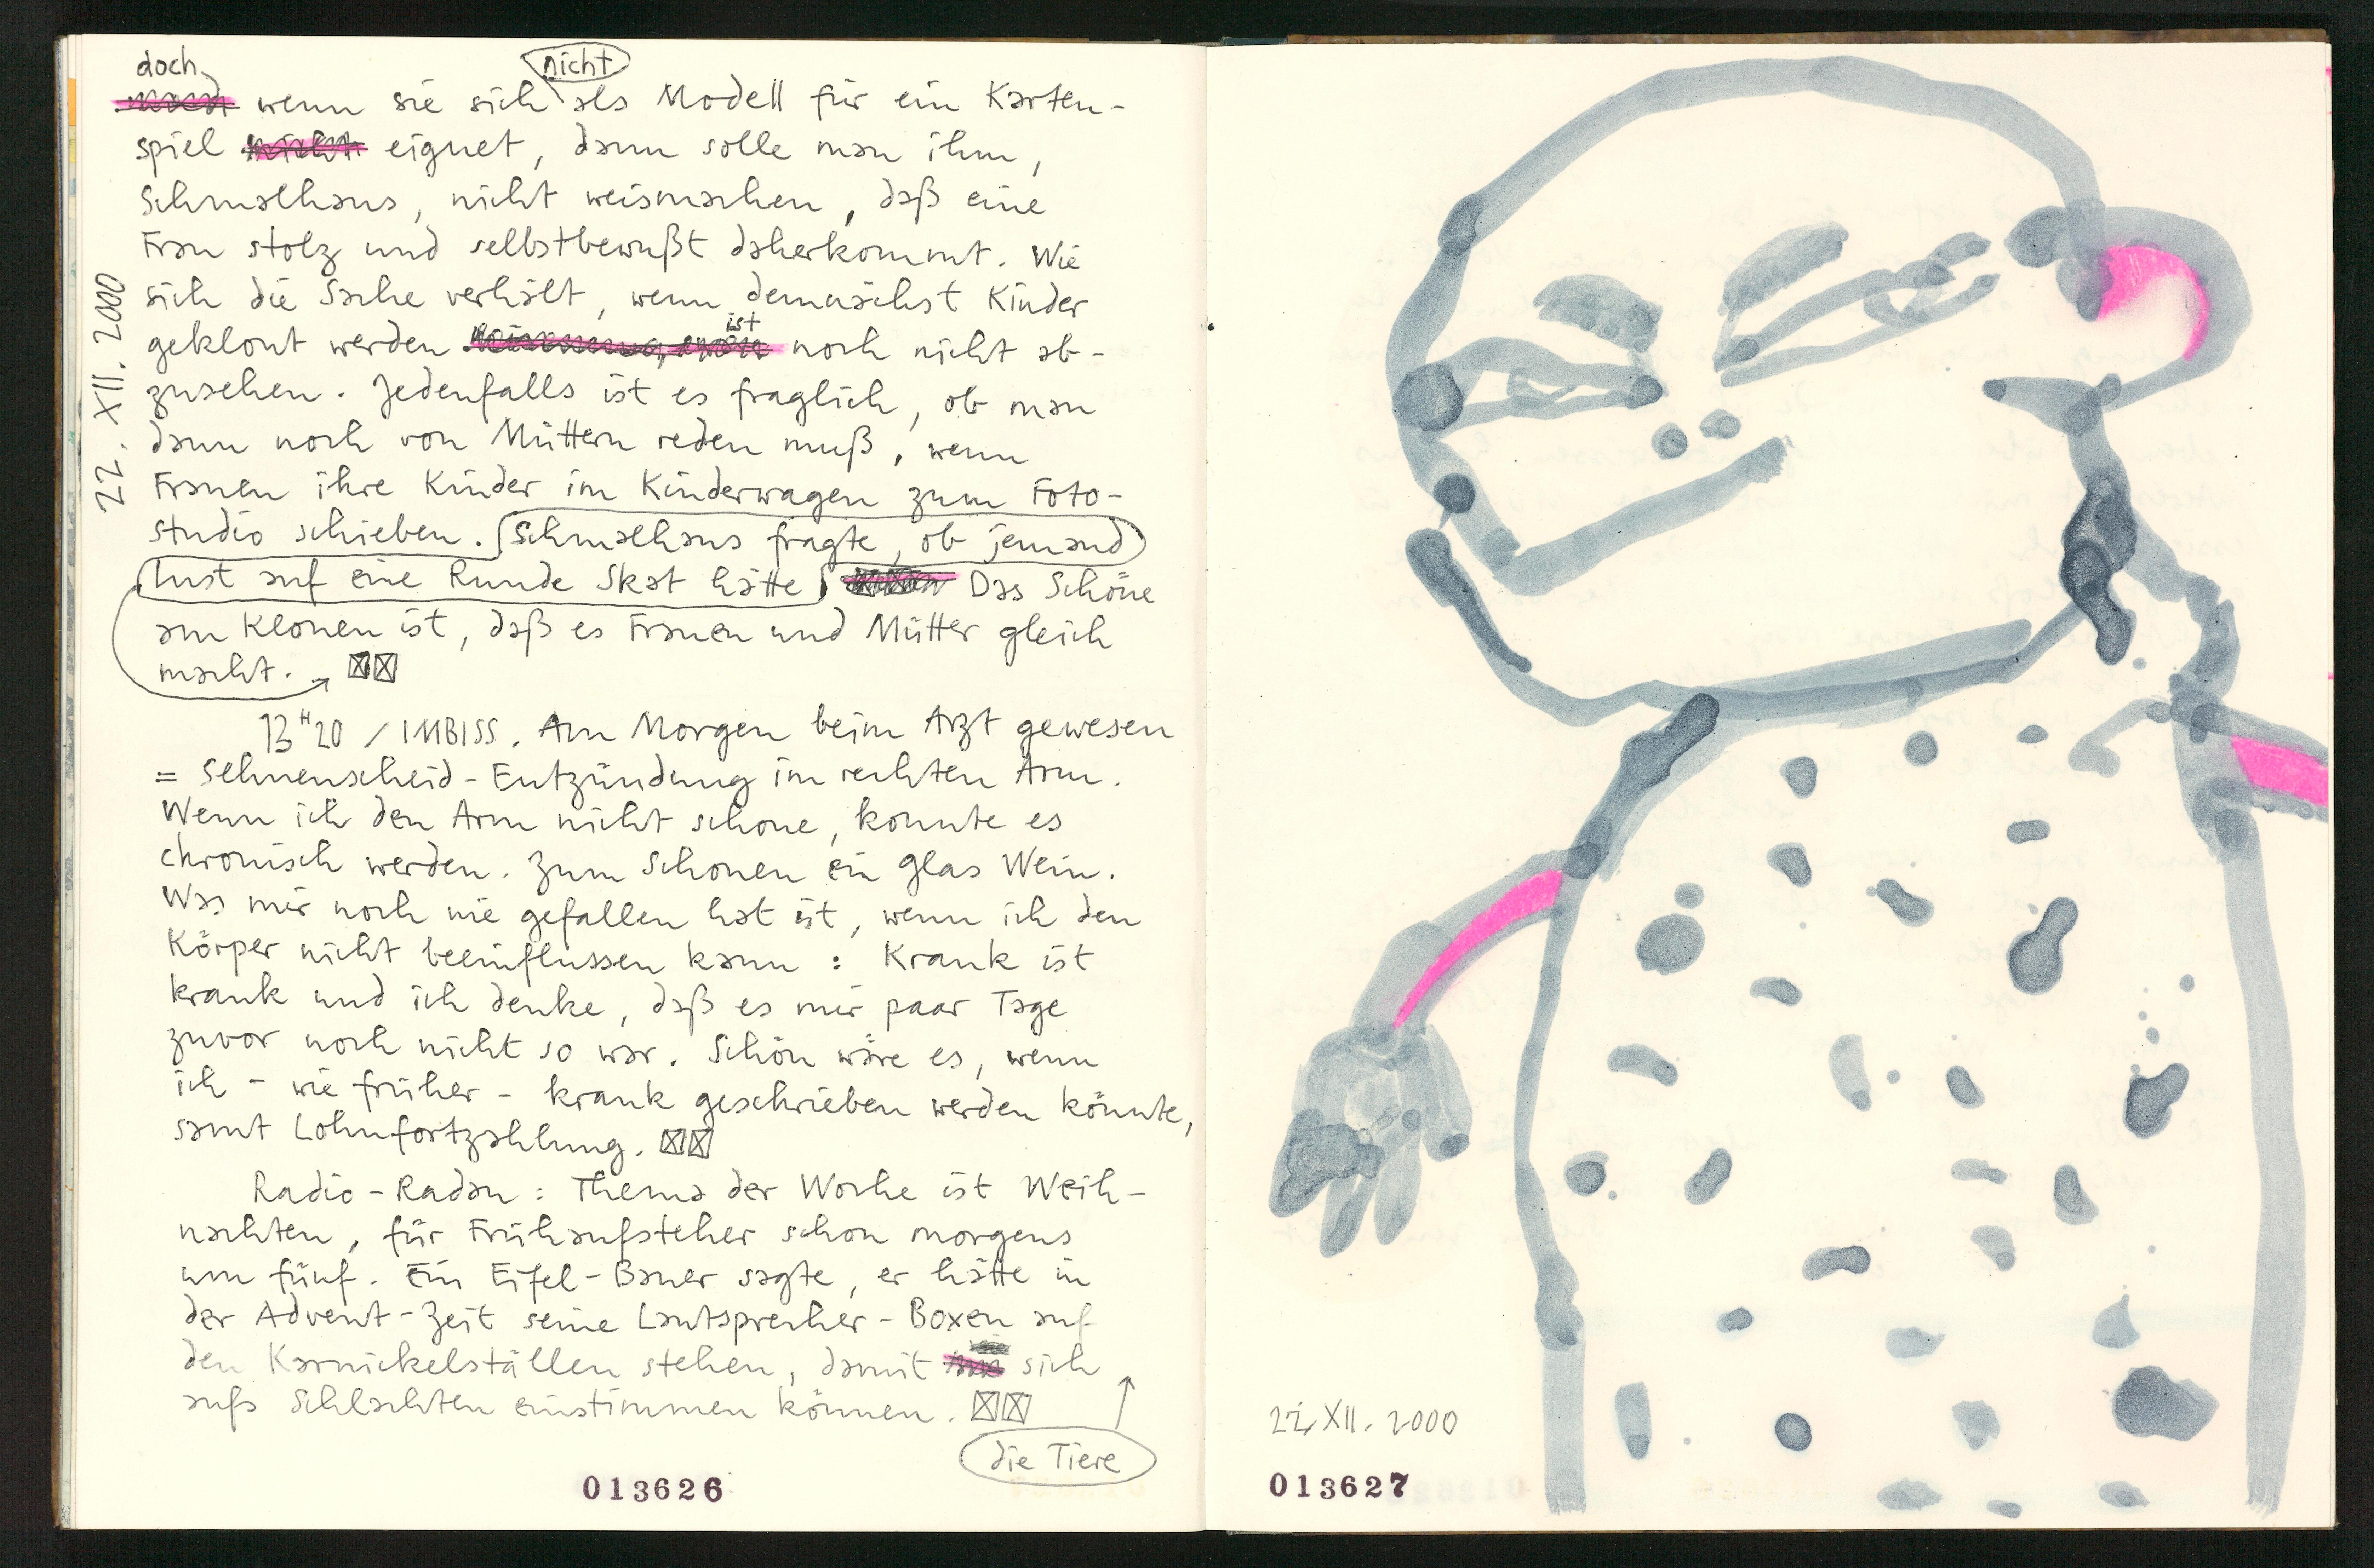 doch nicht
wenn sie sich als Modell für ein Karten-
spiel nicht eignet, dann solle man ihm,
Schmalhaus, nicht weismachen, daß eine
Frau stolz und selbstbewußt daherkommt. Wie
sich die Sache verhält, wenn demnächst Kinder
ist
geklont werden noch nicht ab-
zusehen. Jedenfalls ist es fraglich, ob man
dann noch von Müttern reden muß, wenn
Frauen ihre Kinder im Kinderwagen zum Foto-
studio schieben. Schmalhaus fragte, ob jemand
Lust auf eine Runde Skat hätte Das Schöne
am Klonen ist, daß es Frauen und Mütter gleich
macht.
22. XII. 2000
13H20 / IMBISS. Am Morgen beim Arzt gewesen
= Sehnenscheid-Entzündung im rechten Arm.
Wenn ich den Arm nicht schone, konnte es
chronisch werden. Zum Schonen ein Glas Wein.
Was mir noch nie gefallen hat ist, wenn ich den
Körper nicht beeinflussen kann: Krank ist
krank und ich denke, daß es mir paar Tage
zuvor noch nicht so war. Schön wäre es, wenn
ich - wie früher - krank geschrieben werden könnte,
samt Lohnfortzahlung.
Radio-Radau: Thema der Woche ist Weih-
nachten, für Frühaufsteher schon morgens
um fünf. Ein Eifel-Bauer sagte, er hätte in
der Advent-Zeit seine Lautsprecher-Boxen auf
den Karnickelställen stehen, damit sich
aufs Schlachten einstimmen können.
die Tiere
013626
22. XII. 2000
013627